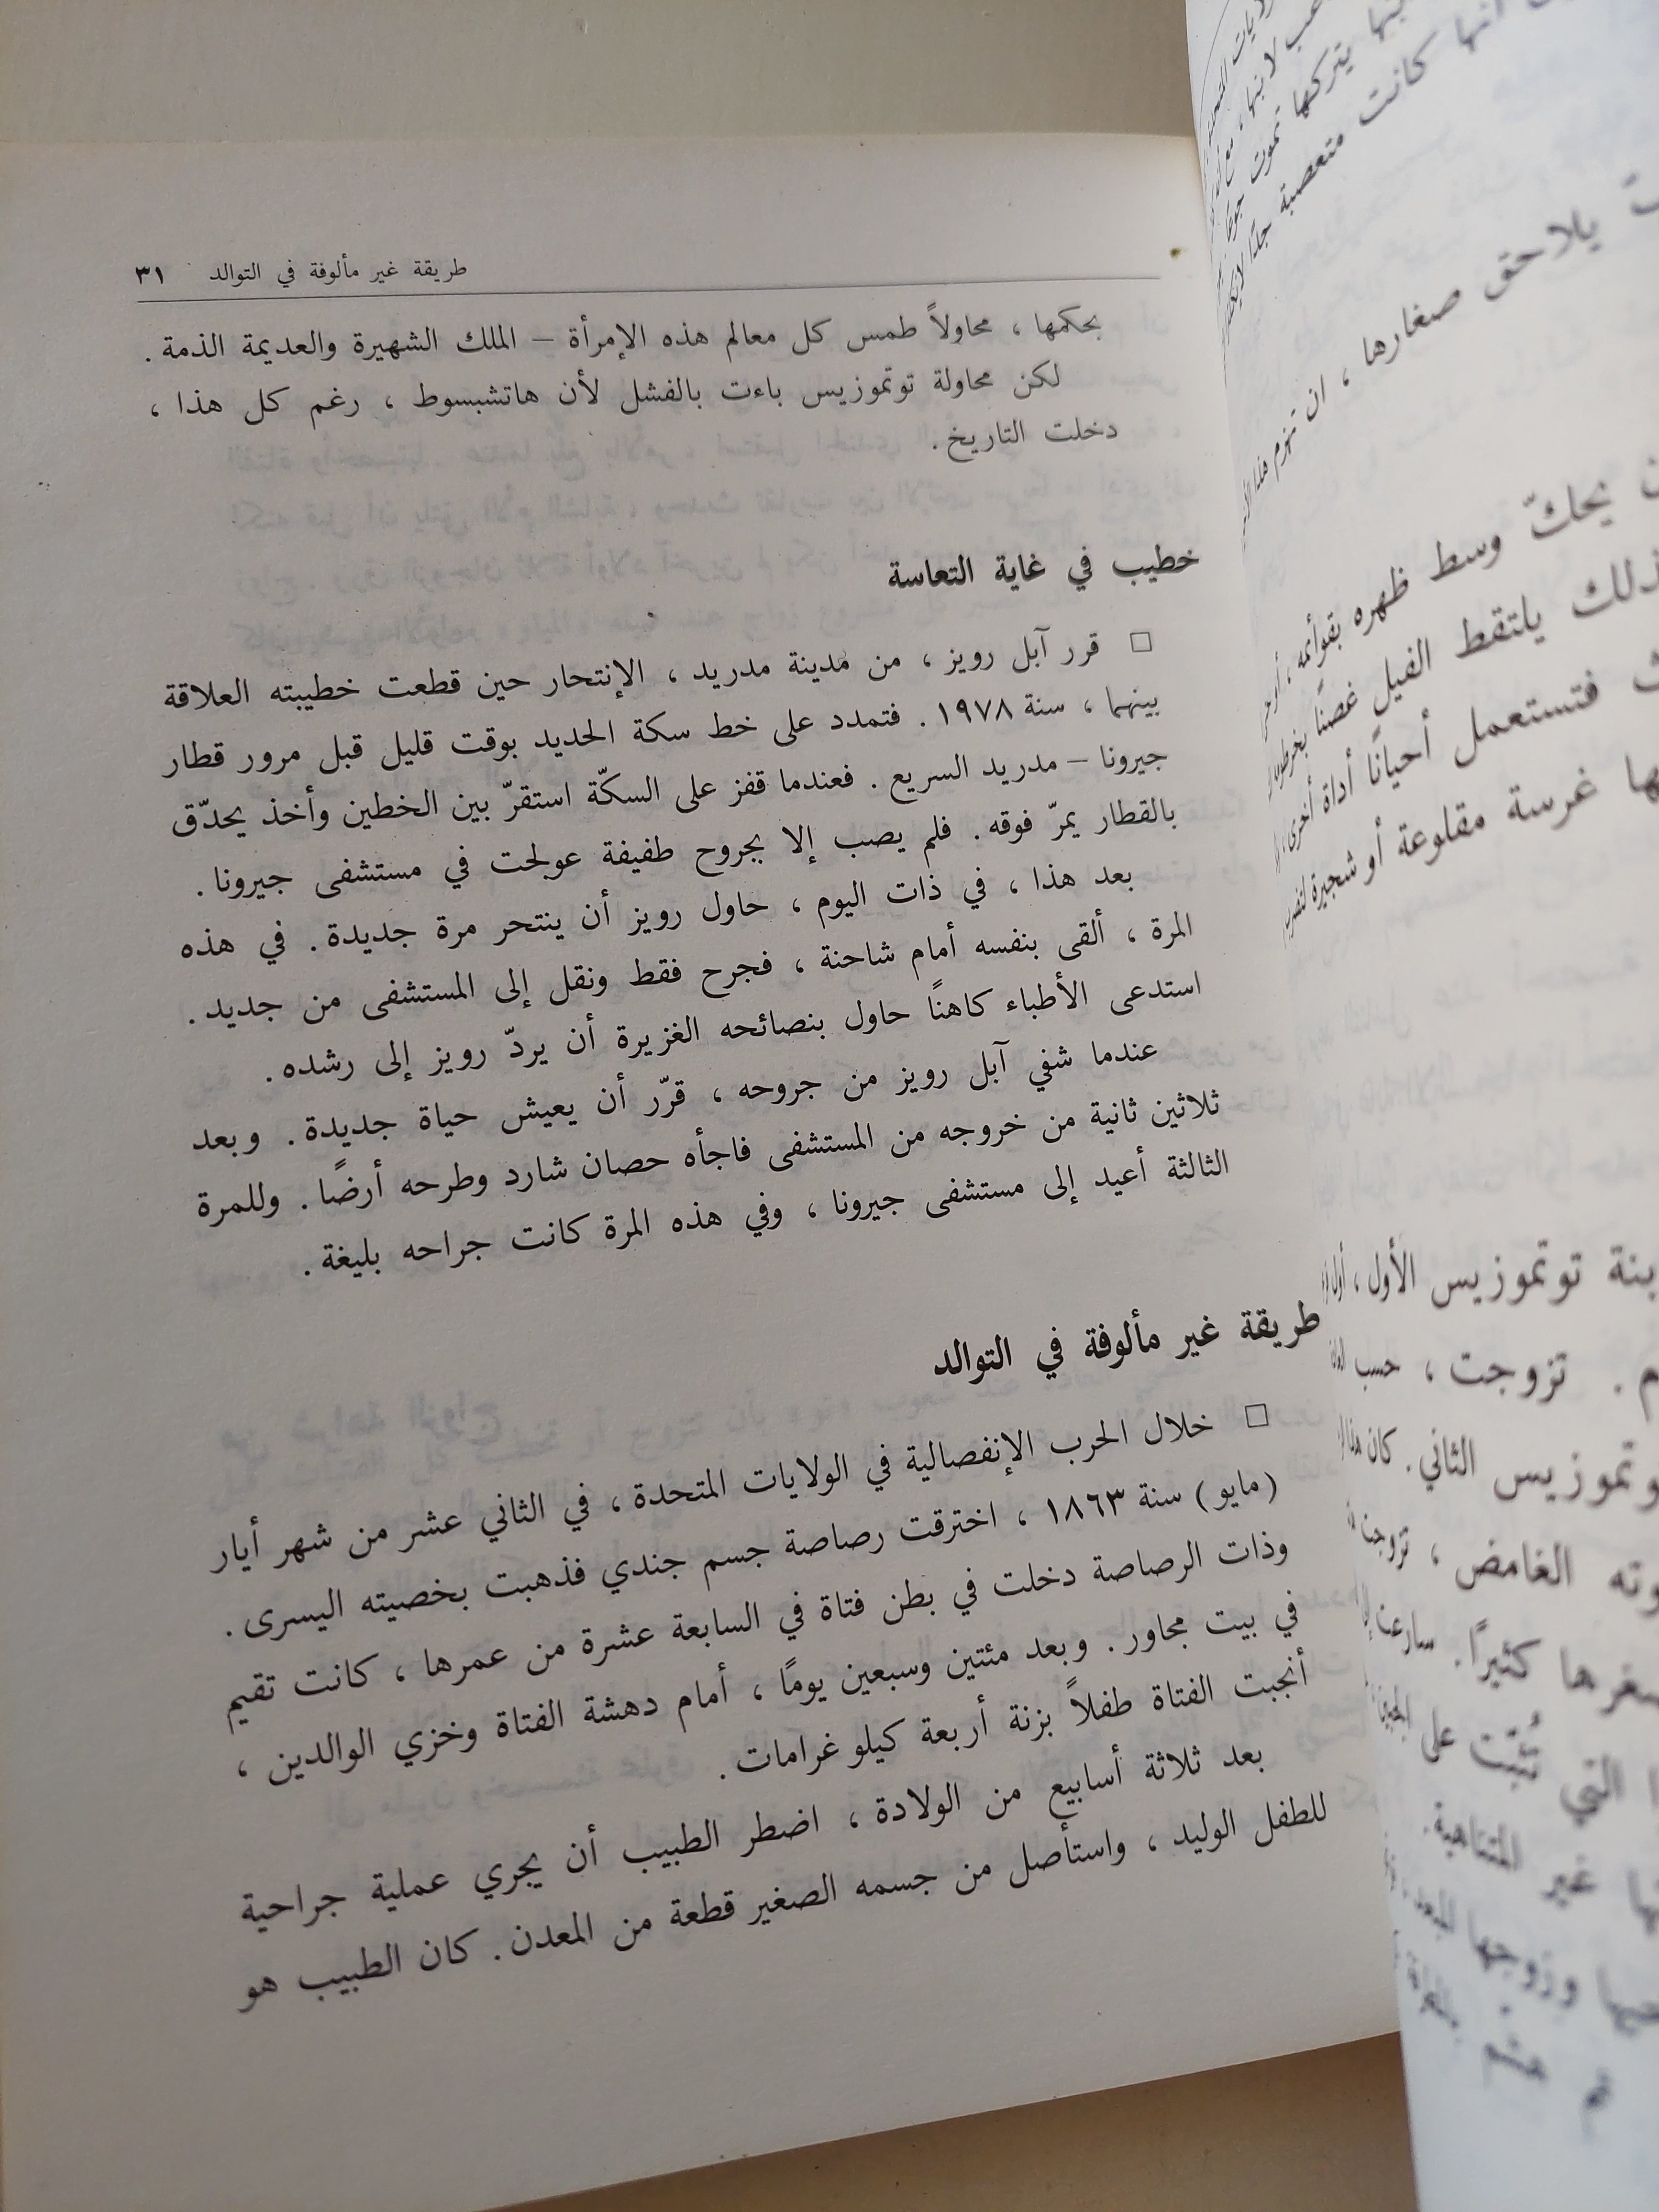 طريقة غير مألوفة في التوالد ٣١
بحكمها ، محاولاً طمس كل معالم هذه الإمرأة – الملك الشهيرة والعديمة الذمة .
لكن محاولة توتموزيس باءت بالفشل لأن هاتشبسوط ، رغم كل هذا ،
دخلت التاريخ .
خطيب في غاية التعاسة
□ قرر آبل رويز ، من مدينة مدريد ، الإنتحار حين قطعت خطيبته العلاقة
بينهما ، سنة ١٩٧٨ . فتمدد على خط سكة الحديد بوقت قليل قبل مرور قطار
جيرونا – مدريد السريع . فعندما قفز على السكّة استقرّ بين الخطين وأخذ يحدّق
بالقطار يمرّ فوقه . فلم يصب إلا بجروح طفيفة عولجت في مستشفى جيرونا .
بعد هذا ، في ذات اليوم ، حاول رويز أن ينتحر مرة جديدة . في هذه
المرة ، ألقى بنفسه أمام شاحنة ، فجرح فقط ونقل إلى المستشفى من جديد .
استدعى الأطباء كاهنًا حاول بنصائحه الغزيرة أن يردّ رويز إلى رشده .
عندما شفي آبل رويز من جروحه ، قرّر أن يعيش حياة جديدة . وبعد
ثلاثين ثانية من خروجه من المستشفى فاجأه حصان شارد وطرحه أرضًا . وللمرة
الثالثة أعيد إلى مستشفى جيرونا ، وفي هذه المرة كانت جراحه بليغة .
طريقة غير مألوفة في التوالد
□ خلال الحرب الإنفصالية في الولايات المتحدة ، في الثاني عشر من شهر أيار
(مايو) سنة ١٨٦٣ ، اخترقت رصاصة جسم جندي فذهبت بخصيته اليسرى .
وذات الرصاصة دخلت في بطن فتاة في السابعة عشرة من عمرها ، كانت تقيم
في بيت مجاور . وبعد مئتين وسبعين يومًا ، أمام دهشة الفتاة وخزي الوالدين ،
أنجبت الفتاة طفلاً بزنة أربعة كيلو غرامات .
بعد ثلاثة أسابيع من الولادة ، اضطر الطبيب أن يجري عملية جراحية
للطفل الوليد ، واستأصل من جسمه الصغير قطعة من المعدن . كان الطبيب هو
أنها كانت متعصبة جدًا
يلاحق صغارها ، ان تهزم هذا
يحكّ وسط ظهره بقوائمه ،
ذلك يلتقط الفيل غصنًا بخرطومه
فتستعمل أحيانًا أداة أخرى ،
غرسة مقلوعة أو شجيرة
توتموزيس الأول ، أول
تزوجت ، حسب
الثاني . كان
الغامض ، تزوجت
كثيرًا . سارعت
التي تثبّت على
غير المتناهية .
وزوجها